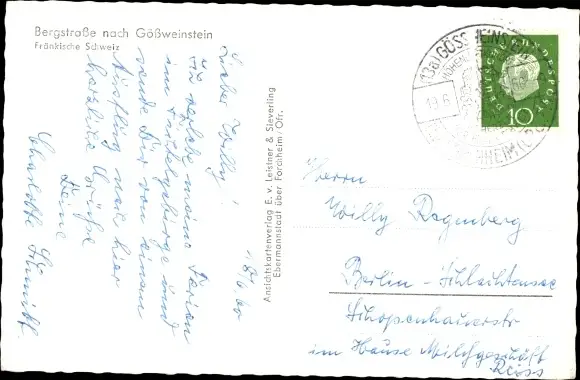 Bergstraße nach Gößweinstein
Fränkische Schweiz
18/6.60
Lieber Willy!
Ich verlebe meine Ferien
im Fichtelgebirge und
sende Dir von einem
Ausflug nach hier
herzliche Grüße
Deine
Charlotte Schmidt
Ansichtskartenverlag E. v. Leistner & Sieverling
Ebermannstadt über Forchheim/Ofr.
(13a) GÖSSWEINSTEIN
DEUTSCHE BUNDESPOST
10
Herrn
Willy Regenberg
Berlin-Schlachtensee
Schopenhauerstr
im Hause Milchgeschäft
Reiss